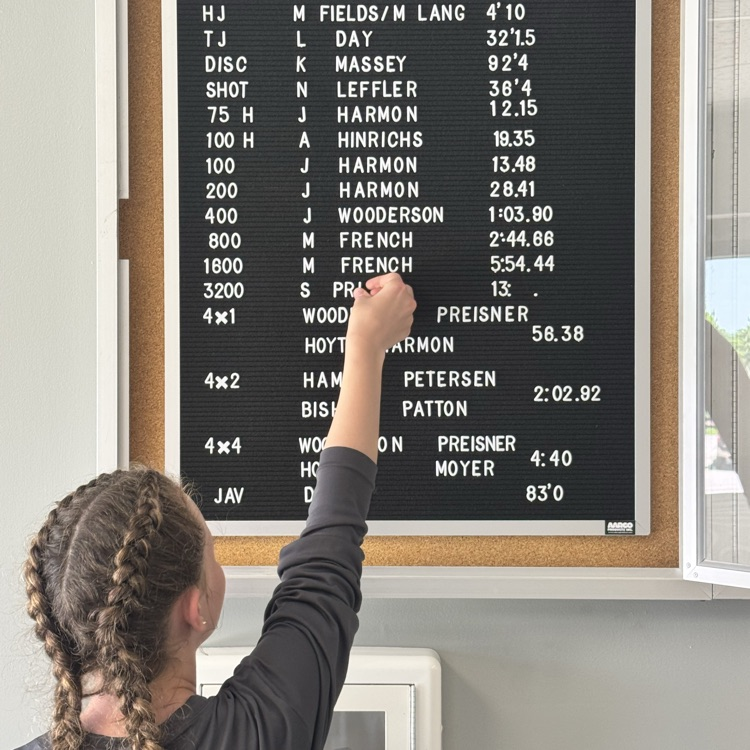 HJ M FIELDS/M LANG 4'10
TJ L DAY 32'1.5
DISC K MASSEY 92'4
SHOT N LEFFLER 36'4
75 H J HARMON 12.15
100 H A HINRICHS 19.35
100 J HARMON 13.48
200 J HARMON 28.41
400 J WOODERSON 1:03.90
800 M FRENCH 2:44.66
1600 M FRENCH 5:54.44
3200 S 13: .
4x1 PREISNER
HARMON 56.38
4x2 PETERSEN
PATTON 2:02.92
4x4 PREISNER
MOYER 4:40
JAV 83'0
AARCO